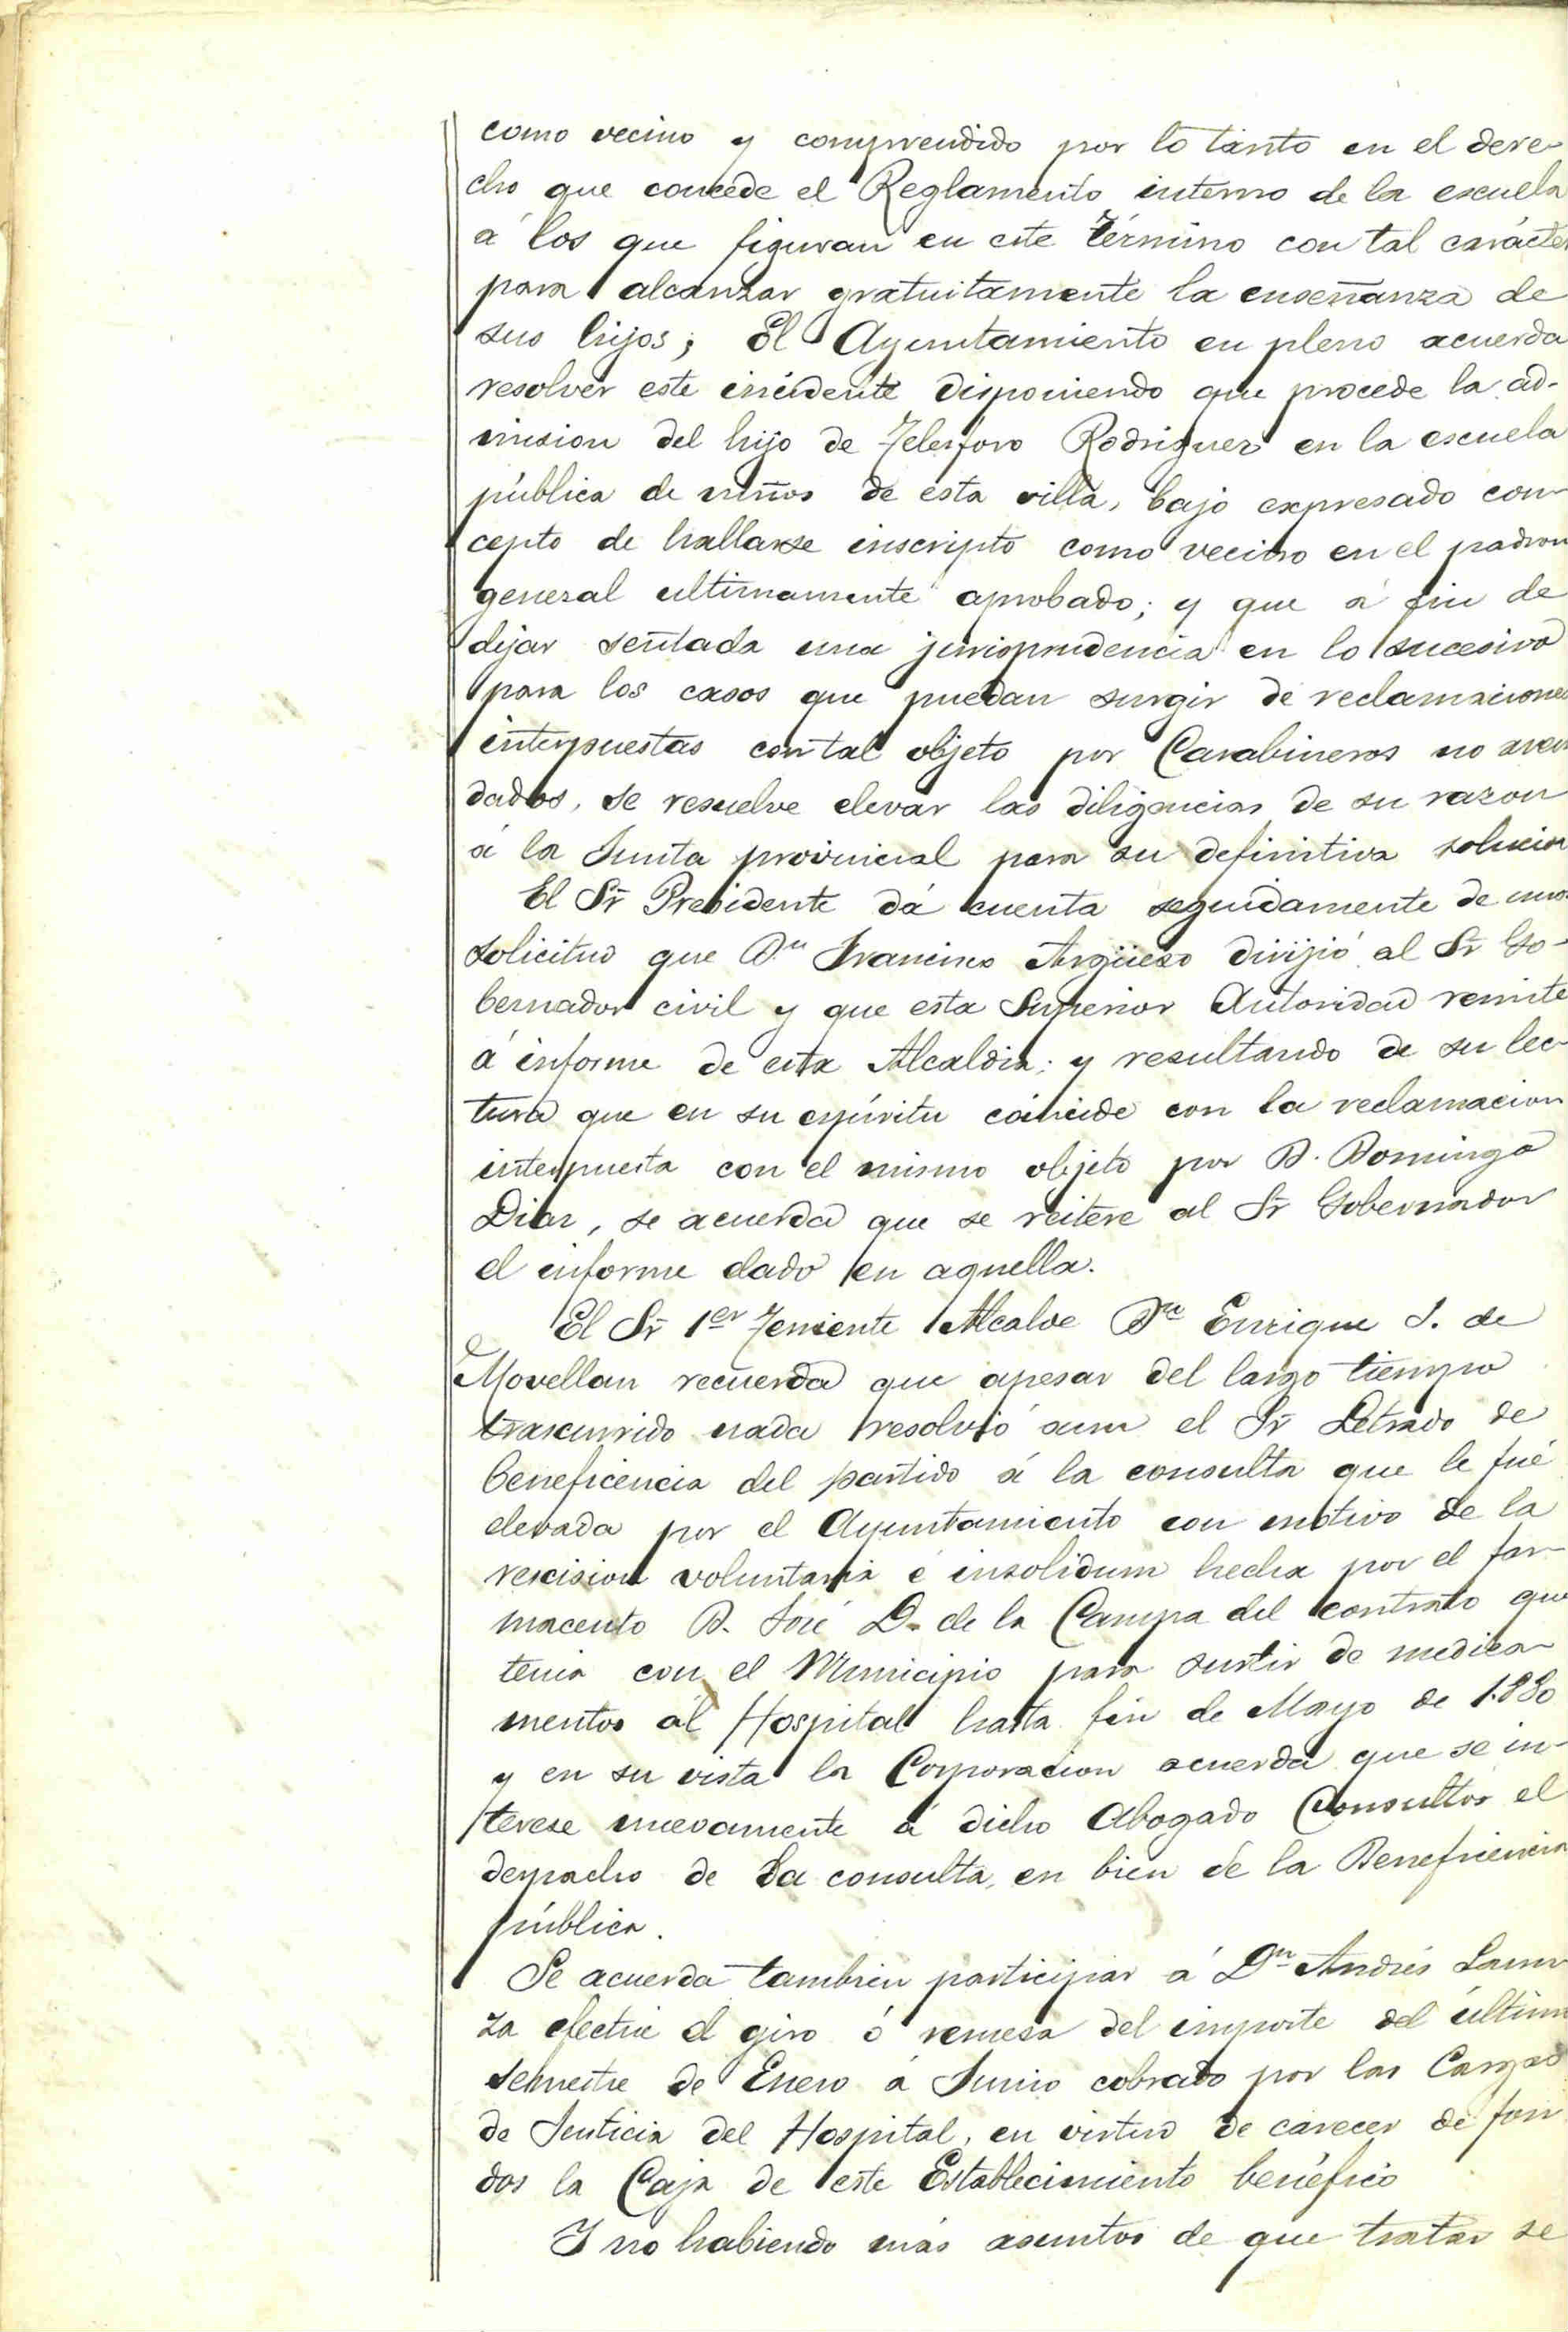 como vecino y comprendido por lo tanto en el dere-
cho que concede el Reglamento interno de la escuela
á los que figuran en este término con tal carácter
para alcanzar gratuitamente la enseñanza de
sus hijos; El Ayuntamiento en pleno acuerda
resolver este incidente disponiendo que procede la ad-
mision del hijo de Telesforo Rodriguez en la escuela
pública de niños de esta villa, bajo expresado con-
cepto de hallarse inscripto como vecino en el padron
general ultimamente aprobado; y que á fin de
dejar sentada una jurisprudencia en lo sucesivo
para los casos que puedan surgir de reclamaciones
interpuestas con tal objeto por Carabineros no avecin
dados, se resuelve elevar las diligencias de su razon
á la Junta provincial para su definitiva solucion
El Sr Presidente dá cuenta seguidamente de una
solicitud que Dn Francisco Argüeso dirijió al Sr Go-
bernador civil y que esta Superior Autoridad remite
á informe de esta Alcaldia; y resultando de su lec-
tura que en su espíritu coincide con la reclamacion
interpuesta con el mismo objeto por D. Domingo
Diaz, se acuerda que se reitere al Sr Gobernador
el informe dado en aquella.
El Sr 1er Teniente Alcalde Dn Enrique S. de
Movellan recuerda que apesar del largo tiempo
trascurrido nada resolvió aun el Sr Letrado de
beneficencia del partido á la consulta que le fué
elevada por el Ayuntamiento con motivo de la
rescision voluntaria é insolidum hecha por el far-
maceuto D. José D. de la Campa del contrato que
tenia con el Municipio para surtir de medica-
mentos al Hospital hasta fin de Mayo de 1.880
y en su vista la Corporacion acuerda que se in-
terese nuevamente á dicho Abogado Consultor el
despacho de la consulta, en bien de la Beneficencia
pública.
Se acuerda tambien participar á Dn Andrés
za efectue el giro ó remesa del importe del último
semestre de Enero á Junio cobrado por las Cargas
de Justicia del Hospital, en virtud de carecer de fon
dos la Caja de este Establecimiento benéfico
Y no habiendo más asuntos de que tratar se